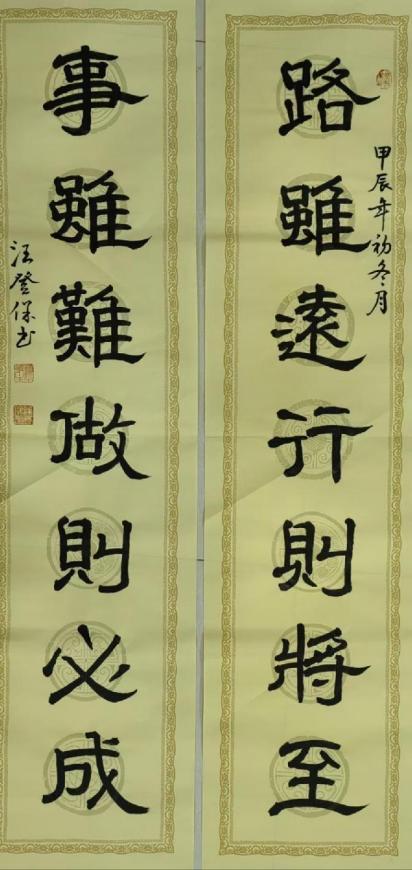 路雖遠行則將至
甲辰年初冬月
事雖難做則必成
汪登保书